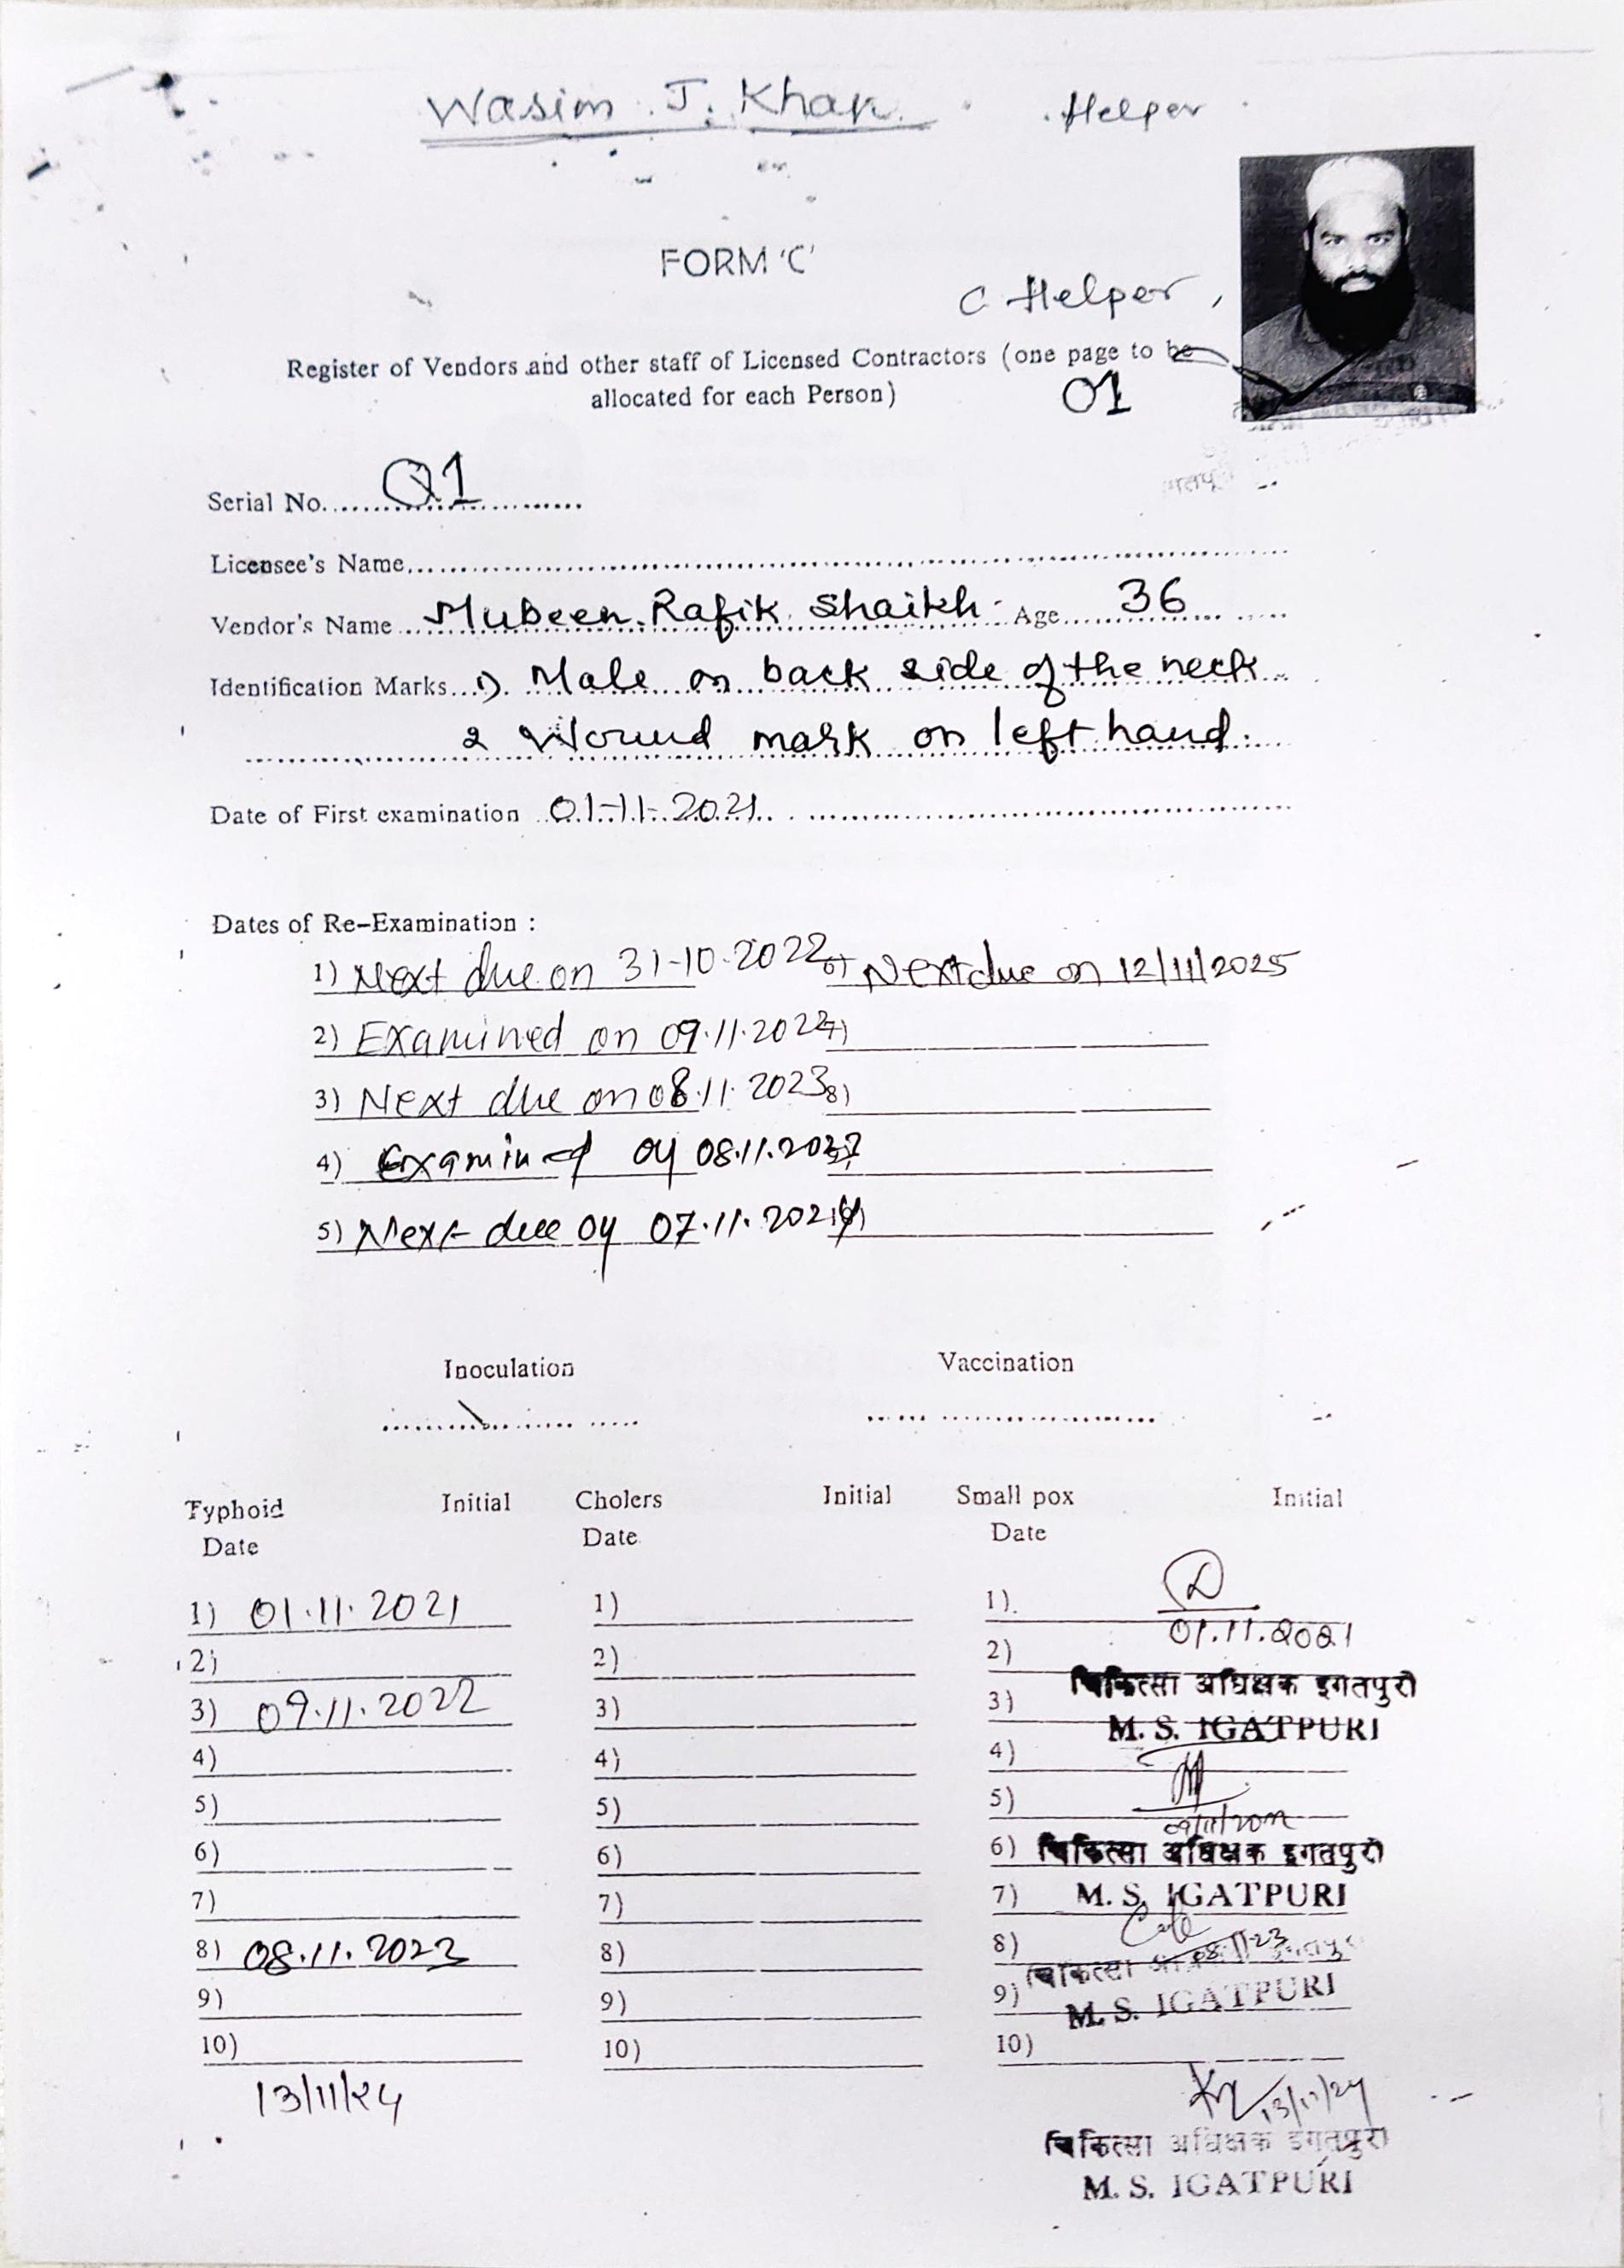 Wasim J. Khan Helper
FORM 'C'
C Helper,
Register of Vendors and other staff of Licensed Contractors (one page to be
allocated for each Person)
01
Serial No. 01
Licensee's Name
Vendor's Name Mubeen Rafik Shaikh Age 36
Identification Marks 1) Male on back side of the neck
2 Wound mark on left hand.
Date of First examination 01-11-2021
Dates of Re-Examination :
1) Next due on 31-10-2022 6) Next due on 12/11/2025
2) Examined on 09.11.2022 7)
3) Next due on 08.11.2023 8)
4) Examined on 08.11.2023
5) Next due on 07.11.2024
Inoculation Vaccination
Typhoid Initial Cholers Initial Small pox Initial
Date Date Date
1) 01.11.2021 1) 1)
01.11.2021
2) 2) 2)
चिकित्सा अधिक्षक इगतपुरी
3) 09.11.2022 3) 3)
M. S. IGATPURI
4) 4) 4)
5) 5) 5)
09/11/2022
6) 6) 6) चिकित्सा अधिक्षक इगतपुरी
7) 7) 7) M. S. IGATPURI
8) 08.11.2023 8) 8) 08/11/23
चिकित्सा
9) 9) 9) M. S. IGATPURI
10) 10) 10)
13/11/24 13/11/24
चिकित्सा अधिक्षक इगतपुरी
M. S. IGATPURI